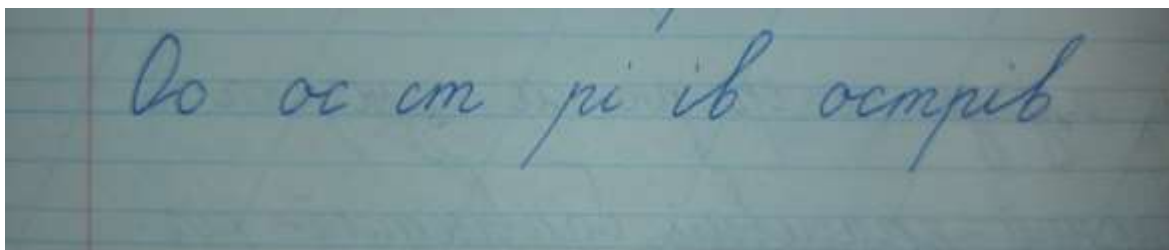 Оо ос ст рі ів острів